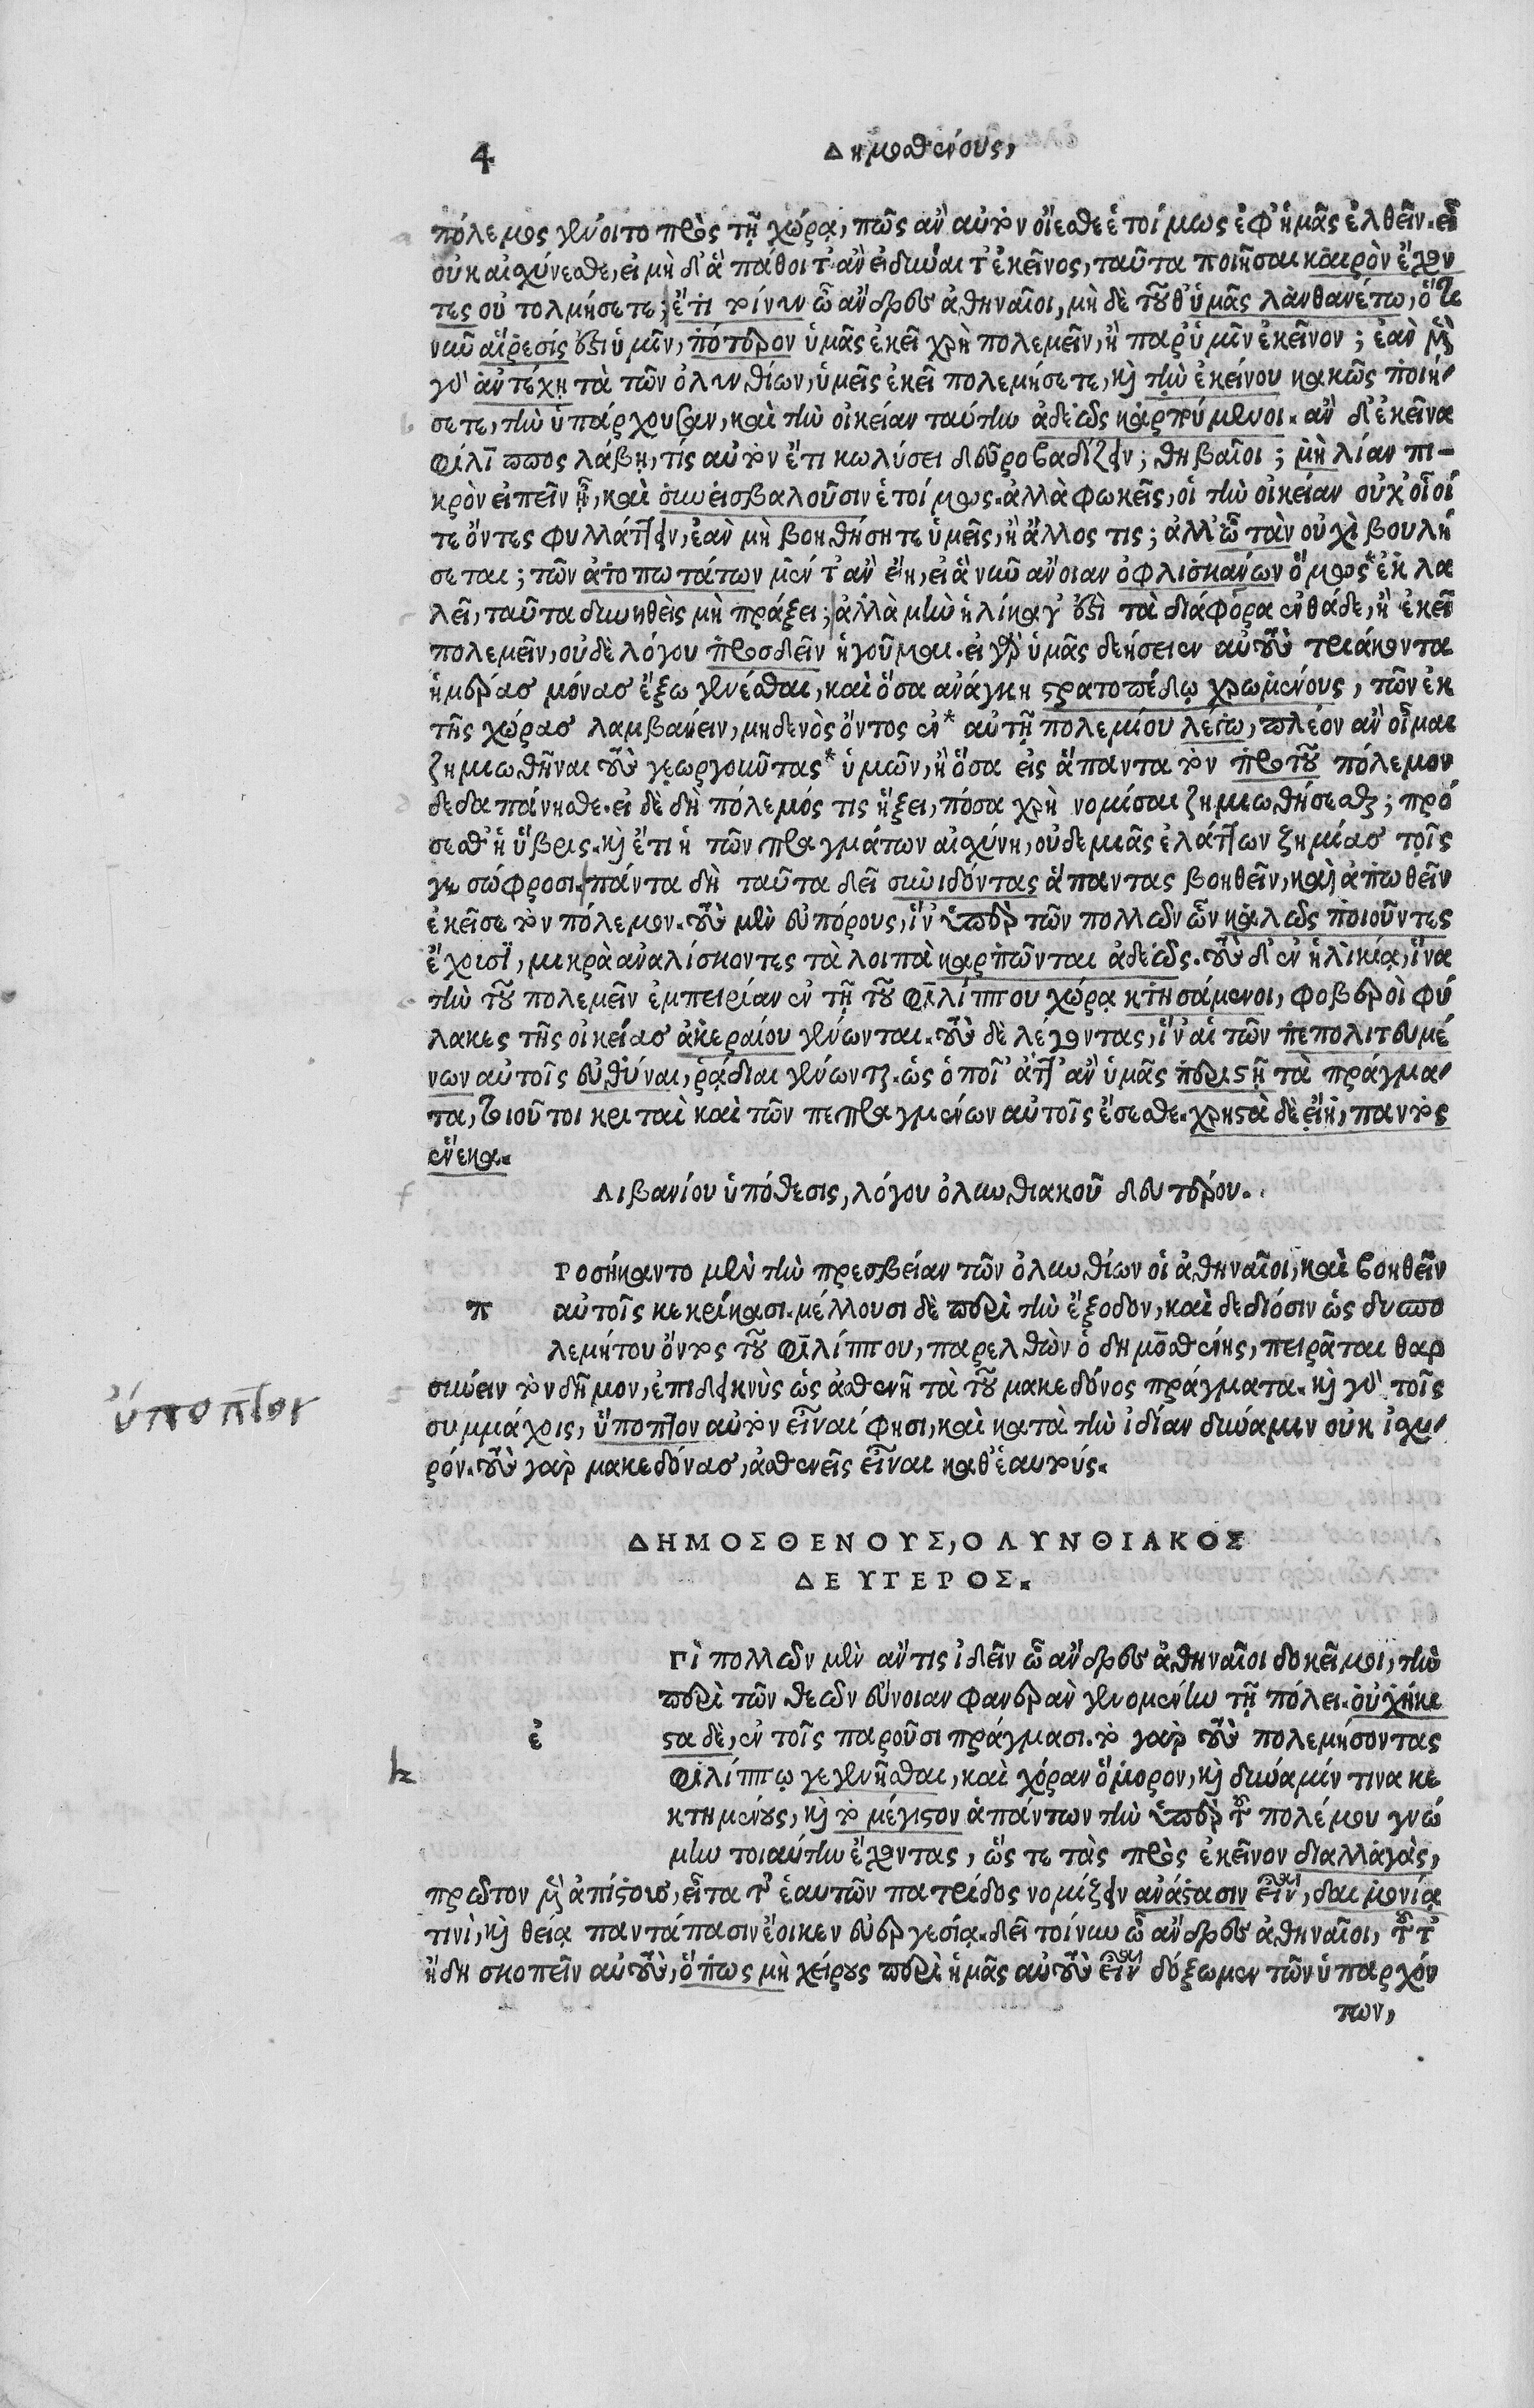 4 Δημοσθένους,
πόλεμος γένοιτο πρὸς τῇ χώρᾳ, πῶς ἂν αὐτὸν οἴεσθε ἑτοίμως ἐφ' ἡμᾶς ἐλθεῖν. εἶ
οὐκ αἰσχύνεσθε, εἰ μὴ δ' ἃ πάθοιτ' ἂν εἰ δύναιτ' ἐκεῖνος, ταῦτα ποιῆσαι καιρὸν ἔχον
τες οὐ τολμήσετε; ἔτι τοίνυν ὦ ἄνδρες ἀθηναῖοι, μὴ δὲ τοῦθ' ὑμᾶς λανθανέτω, ὅτι
νῦν αἵρεσίς ἐστιν ὑμῖν, πότερον ὑμᾶς ἐκεῖ χρὴ πολεμεῖν, ἢ παρ' ὑμῖν ἐκεῖνον; ἐὰν μὲν
γὰρ ἀντέχῃ τὰ τῶν ὀλυνθίων, ὑμεῖς ἐκεῖ πολεμήσετε, καὶ τὴν ἐκείνου κακῶς ποιή-
σετε, τὴν ὑπάρχουσαν, καὶ τὴν οἰκείαν ταύτην ἀδεῶς καρπούμενοι. ἂν δ' ἐκεῖνα
φίλιππος λάβῃ, τίς αὐτὸν ἔτι κωλύσει δεῦρο βαδίζειν; θηβαῖοι; μὴ λίαν πι-
κρὸν εἰπεῖν ᾖ, καὶ συνεισβαλοῦσιν ἑτοίμως. ἀλλὰ φωκεῖς, οἱ τὴν οἰκείαν οὐχ' οἷοί
τε ὄντες φυλλάττειν, ἐὰν μὴ βοηθήσητε ὑμεῖς, ἢ ἄλλος τις; ἀλλ' ὦ τὰν οὐχὶ βουλή
σεται; τῶν ἀτοπωτάτων μέντ' ἂν εἴη, εἰ ἃ νῦν ἄνοιαν ὀφλισκάνων ὅμως* ἐκλα
λεῖ, ταῦτα δυνηθεὶς μὴ πράξει; ἀλλὰ μὴν ἡλίκα γ' ἐστὶ τὰ διάφορα ἐνθάδε, ἢ ἐκεῖ
πολεμεῖν, οὐδὲ λόγου προσδεῖν ἡγοῦμαι. εἰ γὰρ ὑμᾶς δεήσειεν αὐτοὺς τριάκοντα
ἡμέρας μόνας ἔξω γενέσθαι, καὶ ὅσα ἀνάγκη στρατοπέδῳ χρωμένους, τῶν ἐκ
τῆς χώρας λαμβάνειν, μηδενὸς ὄντος ἐν* αὐτῇ πολεμίου λέγω, πλέον ἂν οἶμαι
ζημιωθῆναι τοὺς γεωργοῦντας* ὑμῶν, ἢ ὅσα εἰς ἅπαντα τὸν πρὸ τοῦ πόλεμον
δεδαπάνησθε. εἰ δὲ δὴ πόλεμός τις ἥξει, πόσα χρὴ νομίσαι ζημιωθήσεσθαι; πρό
σεσθ' ἡ ὕβρις. καὶ ἔτι ἡ τῶν πραγμάτων αἰσχύνη, οὐδεμιᾶς ἐλάττων ζημίας τοῖς
γε σώφροσι. πάντα δὴ ταῦτα δεῖ συνιδόντας ἅπαντας βοηθεῖν, καὶ ἀπωθεῖν
ἐκεῖσε τὸν πόλεμον. τοὺς μὲν εὐπόρους, ἵν' ὑπὲρ τῶν πολλῶν ὧν καλῶς ποιοῦντες
ἔχουσι, μικρὰ ἀναλίσκοντες τὰ λοιπὰ καρπῶνται ἀδεῶς. τοὺς δ' ἐν ἡλικίᾳ, ἵνα
τὴν τοῦ πολεμεῖν ἐμπειρίαν ἐν τῇ τοῦ φιλίππου χώρᾳ κτησάμενοι, φοβεροὶ φύ
λακες τῆς οἰκείας ἀκεραίου γένωνται. τοὺς δὲ λέγοντας, ἵν' αἱ τῶν πεπολιτευμέ
νων αὐτοῖς εὐθύναι, ῥᾴδιαι γένωνται. ὡς ὁποῖ' ἄττ' ἂν ὑμᾶς περιστῇ τὰ πράγμα-
τα, τοιοῦτοι κριταὶ καὶ τῶν πεπραγμένων αὐτοῖς ἔσεσθε. χρηστὰ δὲ εἴη, παντὸς
ἕνεκα.
Λιβανίου ὑπόθεσις, λόγου ὀλυνθιακοῦ δευτέρου.
Ροσήκαντο μὲν τὴν πρεσβείαν τῶν ὀλυνθίων οἱ ἀθηναῖοι, καὶ βοηθεῖν
π αὐτοῖς κεκρίκασι. μέλλουσι δὲ περὶ τὴν ἔξοδον, καὶ δεδιόσιν ὡς δυσπο
λεμήτου ὄντος τοῦ φιλίππου, παρελθὼν ὁ δημοσθένης, πειρᾶται θαρ
σύνειν τὸν δῆμον, ἐπιδεικνὺς ὡς ἀσθενῆ τὰ τοῦ μακεδόνος πράγματα. καὶ γὰρ τοῖς
ὑποπτον
συμμάχοις, ὕποπτον αὐτὸν εἶναί φησι, καὶ κατὰ τὴν ἰδίαν δύναμιν οὐκ ἰσχυ-
ρόν. τοὺς γὰρ μακεδόνας, ἀσθενεῖς εἶναι καθ' ἑαυτούς.
ΔΗΜΟΣΘΕΝΟΥΣ, ΟΛΥΝΘΙΑΚΟΣ
ΔΕΥΤΕΡΟΣ.
Γὶ πολλῶν μὲν ἄν τις ἰδεῖν ὦ ἄνδρες ἀθηναῖοι δοκεῖ μοι, τὴν
περὶ τῶν θεῶν εὔνοιαν φανερὰν γενομένην τῇ πόλει. οὐχ ἥκι
ἐ στα δὲ, ἐν τοῖς παροῦσι πράγμασι. τὸ γὰρ τοὺς πολεμήσοντας
φιλίππῳ γεγενῆσθαι, καὶ χόραν ὅμορον, καὶ δύναμίν τινα κε
κτημένους, καὶ τὸ μέγιστον ἁπάντων τὴν ὑπὲρ τοῦ πολέμου γνώ
μην τοιαύτην ἔχοντας, ὥς τε τὰς πρὸς ἐκεῖνον διαλλαγὰς,
πρῶτον μὲν ἀπίστους, εἶτα τῆς ἑαυτῶν πατρίδος νομίζειν ἀνάστασιν εἶναι, δαιμονίᾳ
τινὶ, καὶ θείᾳ παντάπασιν ἔοικεν εὐεργεσίᾳ. δεῖ τοίνυν ὦ ἄνδρες ἀθηναῖοι, τοῦτ'
ἤδη σκοπεῖν αὐτοὺς, ὅπως μὴ χείρους περὶ ἡμᾶς αὐτοὺς εἶναι δόξωμεν τῶν ὑπαρχόν
των,